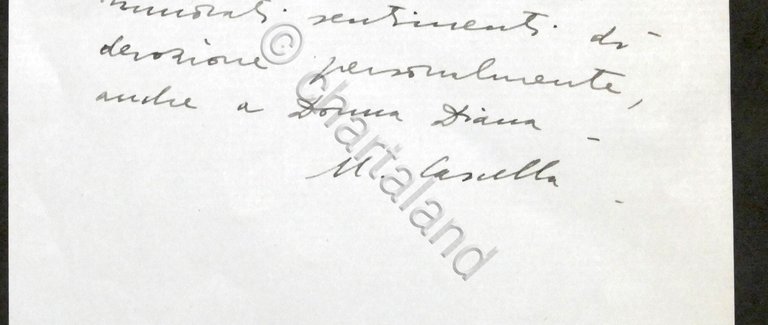 sentimenti di
devozione personalmente,
anche a Donna Diana -
M. Casella
© Chartaland